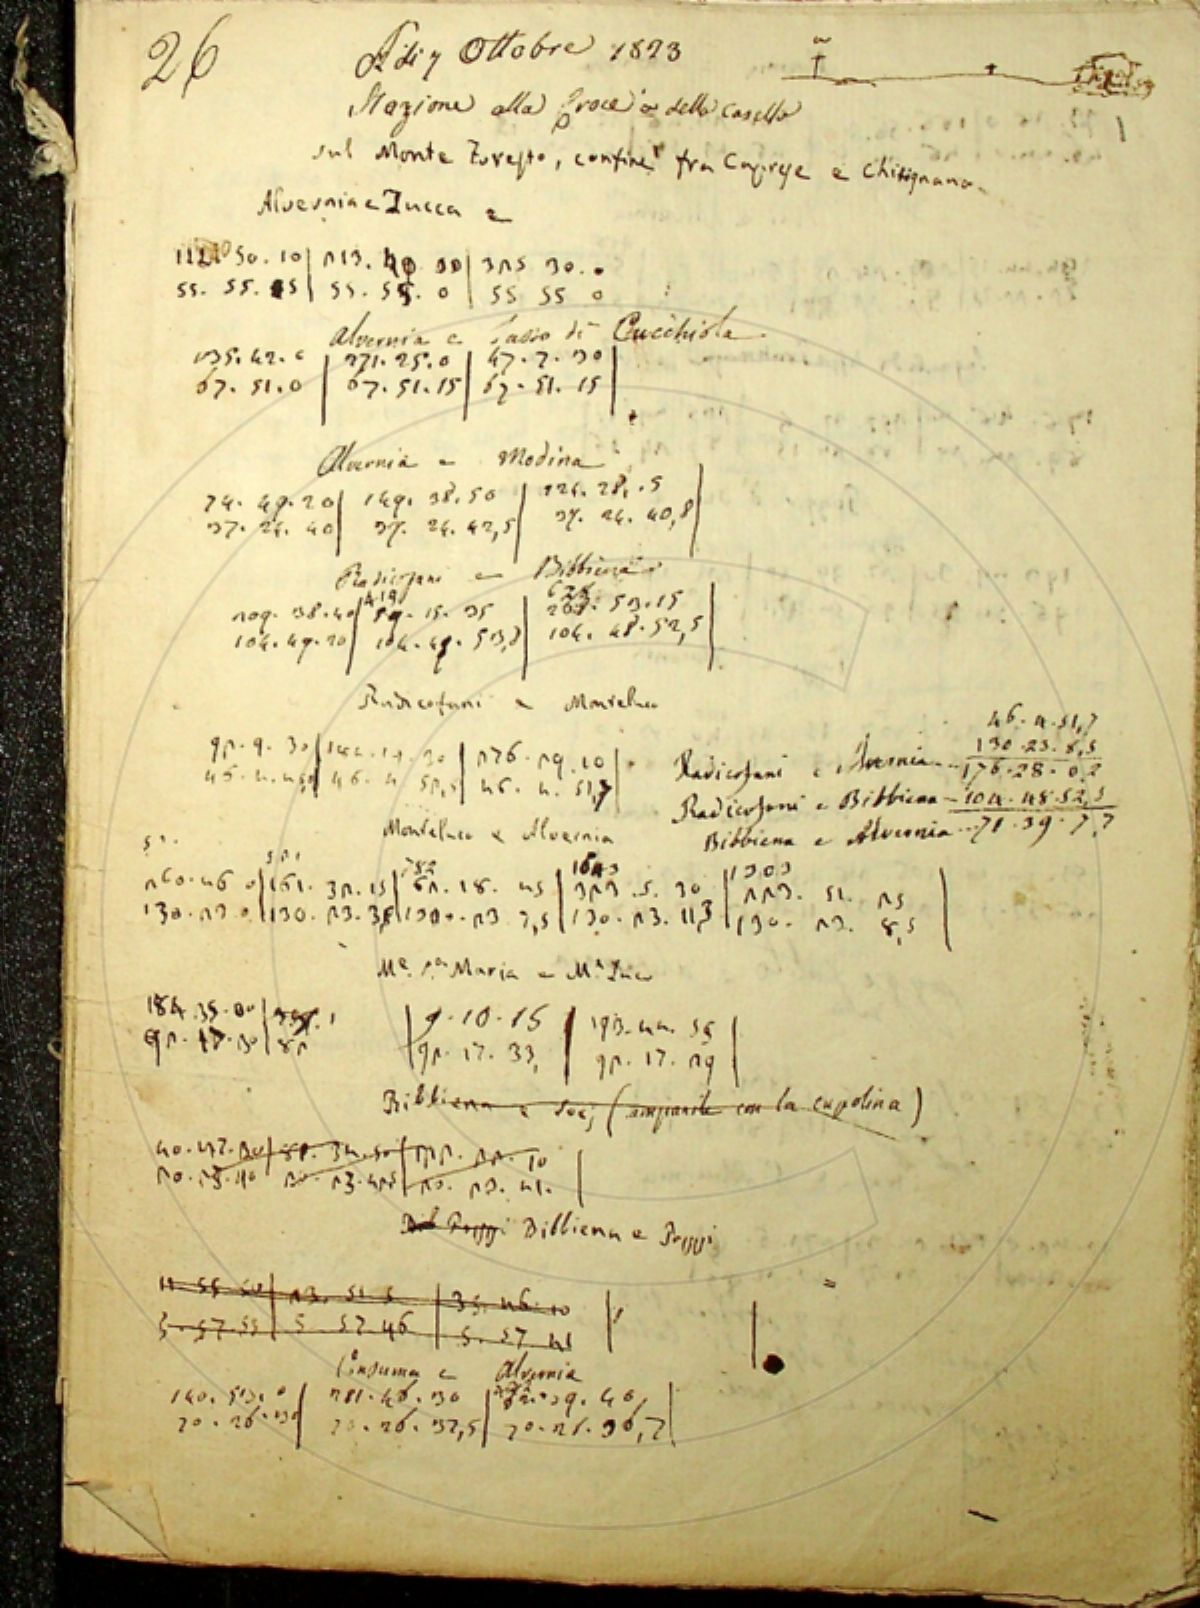 26
Adi 7 Ottobre 1823
Stazione alla Croce o della Casella
sul Monte Foresto, confine fra Caprese e Chitignano
Alvernia e Zucca e
55. 55. 55. 0 55 55 0
Alvernia e Sasso di Cucchiola
135. 42. 0 271. 25. 0 47. 7. 30
67. 51. 0 67. 51. 15 67. 51. 15
Alvernia e Modina
74. 49. 20 149. 38. 50 224. 28. 5
37. 24. 40 37. 24. 42,5 37. 24. 40,8
Radicofani e Bibbiena
419 628
209. 38. 40 59. 15. 35 53. 15
104. 49. 20 104. 49. 53,8 104. 48. 52,5
Radicofani e Monteluco
92. 9. 30 30 276. 29. 10
46. 4. 46. 4 46. 4. 51,7
46. 4. 51,7
Radicofani e Alvernia 130. 23. 8,5
176. 28. 0,2
Radicofani e Bibbiena 104. 48. 52,5
Bibbiena e Alvernia 71. 39. 7,7
Monteluco e Alvernia
521 782 1043 1303
260. 46 0 161. 32. 15 62. 18. 45 323. 5. 30 223. 51. 25
130. 23. 0 130. 23. 130. 23 7,5 130. 23. 11,3 130. 23. 8,5
Me. Sa Maria e Me Luco
184. 35. 00 9. 10. 15 193. 44. 55
92. 17. 30 92. 17. 33, 92. 17. 29
Bibbiena e Soci (campanile con la cupolina)
40. 47. 20 81. 34. 50 122. 22. 10
20. 23. 40 20. 23. 20. 23. 41.
Bib Poppi Bibbiena e Poppi
11 55 50 23. 51 5 35. 46. 10
5. 57. 55 5 57. 46 5. 57 41
Consuma e Alvernia
140. 53. 0 281. 46. 30 62. 39. 40
70. 26. 30 70. 26. 37,5 70. 26. 36,7